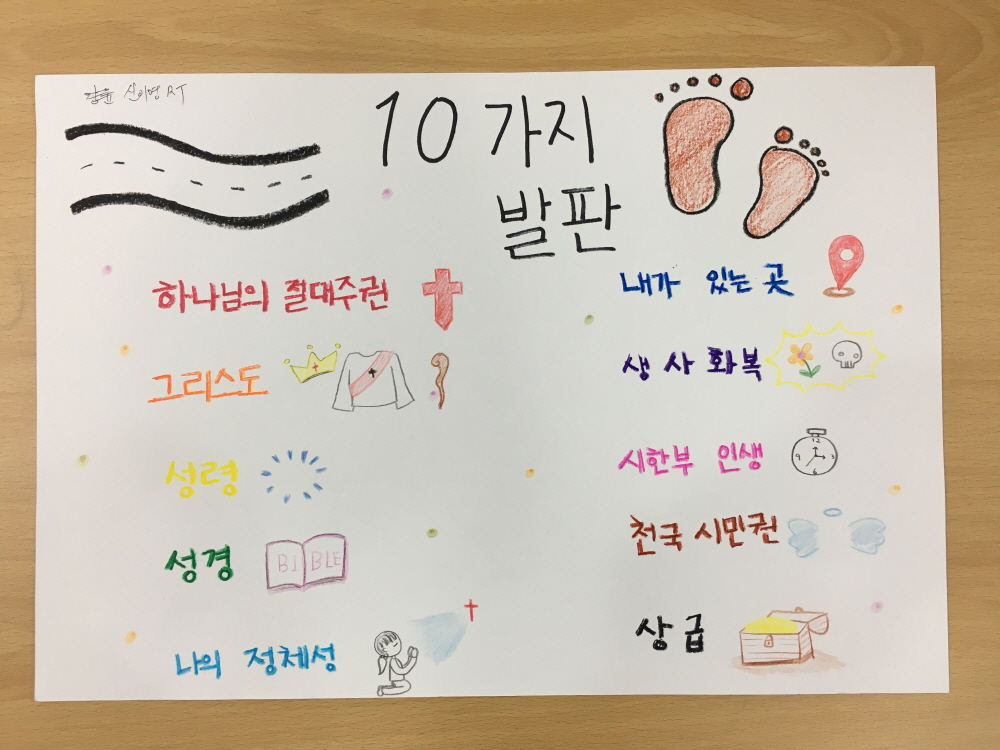 신이영 RT
10 가지
발판
하나님의 절대주권
그리스도
성령
성경
BIBLE
나의 정체성
내가 있는 곳
생사화복
시한부 인생
12
9 3
6
천국 시민권
상급